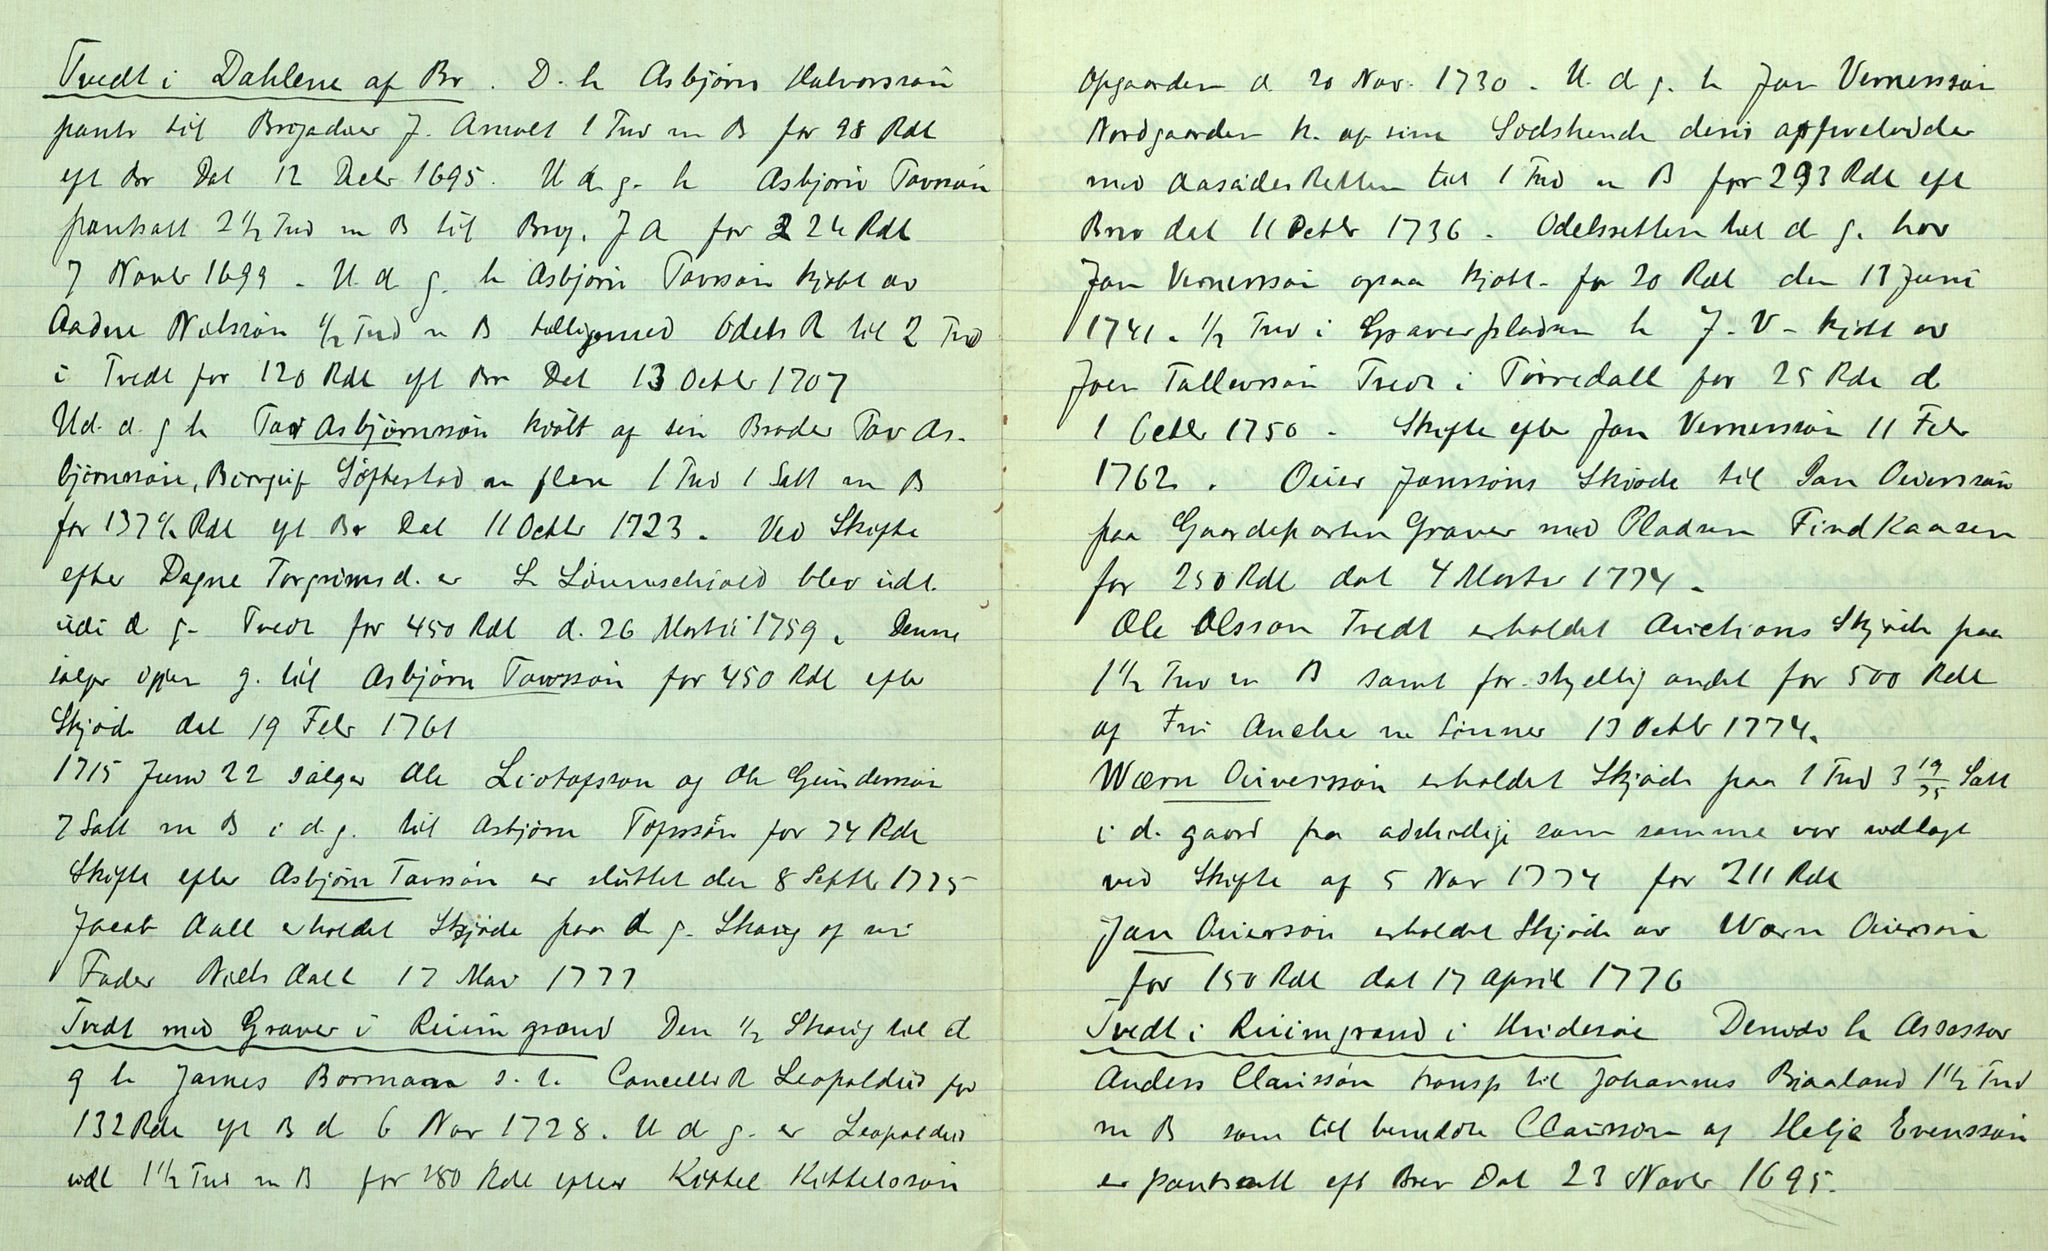 Tvedt i Dahlene af Br. D. h Asbjørn Halvorssøn
pants til Brigadeer J. Arnolt 1 Tnd m B for 98 Rdl
eft Br Dat 12 Decbr 1695. U d g. h Asbjørn Tavssøn
pantsatt 2 1/2 Tnd m B til Brig. J A for 224 Rdl
7 Novbr 1699 - U. d g. h Asbjørn Tavssøn kjøbt av
Aadne Nielssøn 1/2 Tnd m B tilligemed Odels R til 2 Tnd
i Tvedt for 120 Rdl eft Br Dat 13 Octbr 1707
Ud. d. g h Tav Asbjørnssøn kjøbt af sin Broder Tav As-
bjørnssøn, Birgit Søftestad m flere 1 Tnd 1 Sett m B
for 137 1/2 Rdl eft Br Dat 11 Octbr 1723. Ved Skifte
efter Dagne Torgrimsd. er L Lønnschiold blev udl.
udi d g. Tvedt for 450 Rdl d. 26 Martii 1759. Denne
sælger d g. til Asbjørn Tavssøn for 450 Rdl efter
Skjøde dat 19 Febr 1761
1715 Juni 22 sælger Ole Liotofsson og Ole Gundersson
7 Sett m B i d. g. til Asbjørn Tofssøn for 74 Rdl
Skifte efter Asbjørn Tavssøn er sluttet den 8 Septbr 1775
Jacob Aall erholdet Skjøde paa d g. Skoug af sin
Fader Niels Aall 17 Mar 1777
Tvedt med Graver i Ruimgrand Den 1/2 Skoug til d
g h James Bormann s. t. Cancelli R Leopoldus for
132 Rdl eft B d 6 Nov 1728. U d g. er Leopoldus
udl 1 1/2 Tnd m B for 180 Rdl efter Kittel Kittelsson
Opgaarden d 20 Nov. 1730 - U. d g. h Jan Vernerssøn
Nordgaarden k. af sine Sødskende deris arfvelodder
med Aasædes Retten til 1 Tnd m B for 293 Rdl eft
Brev dat 11 Octbr 1736 - Odelsretten til d g. hor
Jan Vernerssøn ogsaa kjøbt for 20 Rdl den 13 Juni
1741. 1/2 Tnd i Graverpladsen h J. V - kjøbt av
Joen Tallevssøn Tvedt i Tørredall for 25 Rdl d
1 Octbr 1750 - Skifte efter Jan Vernerssøn 11 Febr
1762. Ouier Janssøns Skiøde til Jan Ouierssøn
paa Gaardeparten Graver med Pladsen Findkaasen
for 250 Rdl dat 4 Marts 1774.
Ole Olsson Tvedt erholdet Auctions Skjøde paa
1 1/2 Tnd m B samt for-skjellig andet for 500 Rdl
af Fru Anche m Sønner 13 Octbr 1774.
Wærn Ouiverssøn erholdet Skjøde paa 1 Tnd 3 19/25 Sett
i d. gaard fra adskidige som samme var udlagt
ved Skifte af 5 Nov 1774 for 211 Rdl
Jan Ouierson erholdet Skjøde av Wærn Ouierson
for 150 Rdl dat 17 April 1776
Tvedt i Ruimgrand i Hvidesøe Demado h Assessor
Anders Claussøn transp til Johannes Biaaland 1 1/2 Tnd
m B som til bemeldte Clausson af Helje Evenssøn
er pantsatt eft Brev Dat 23 Novbr 1695.